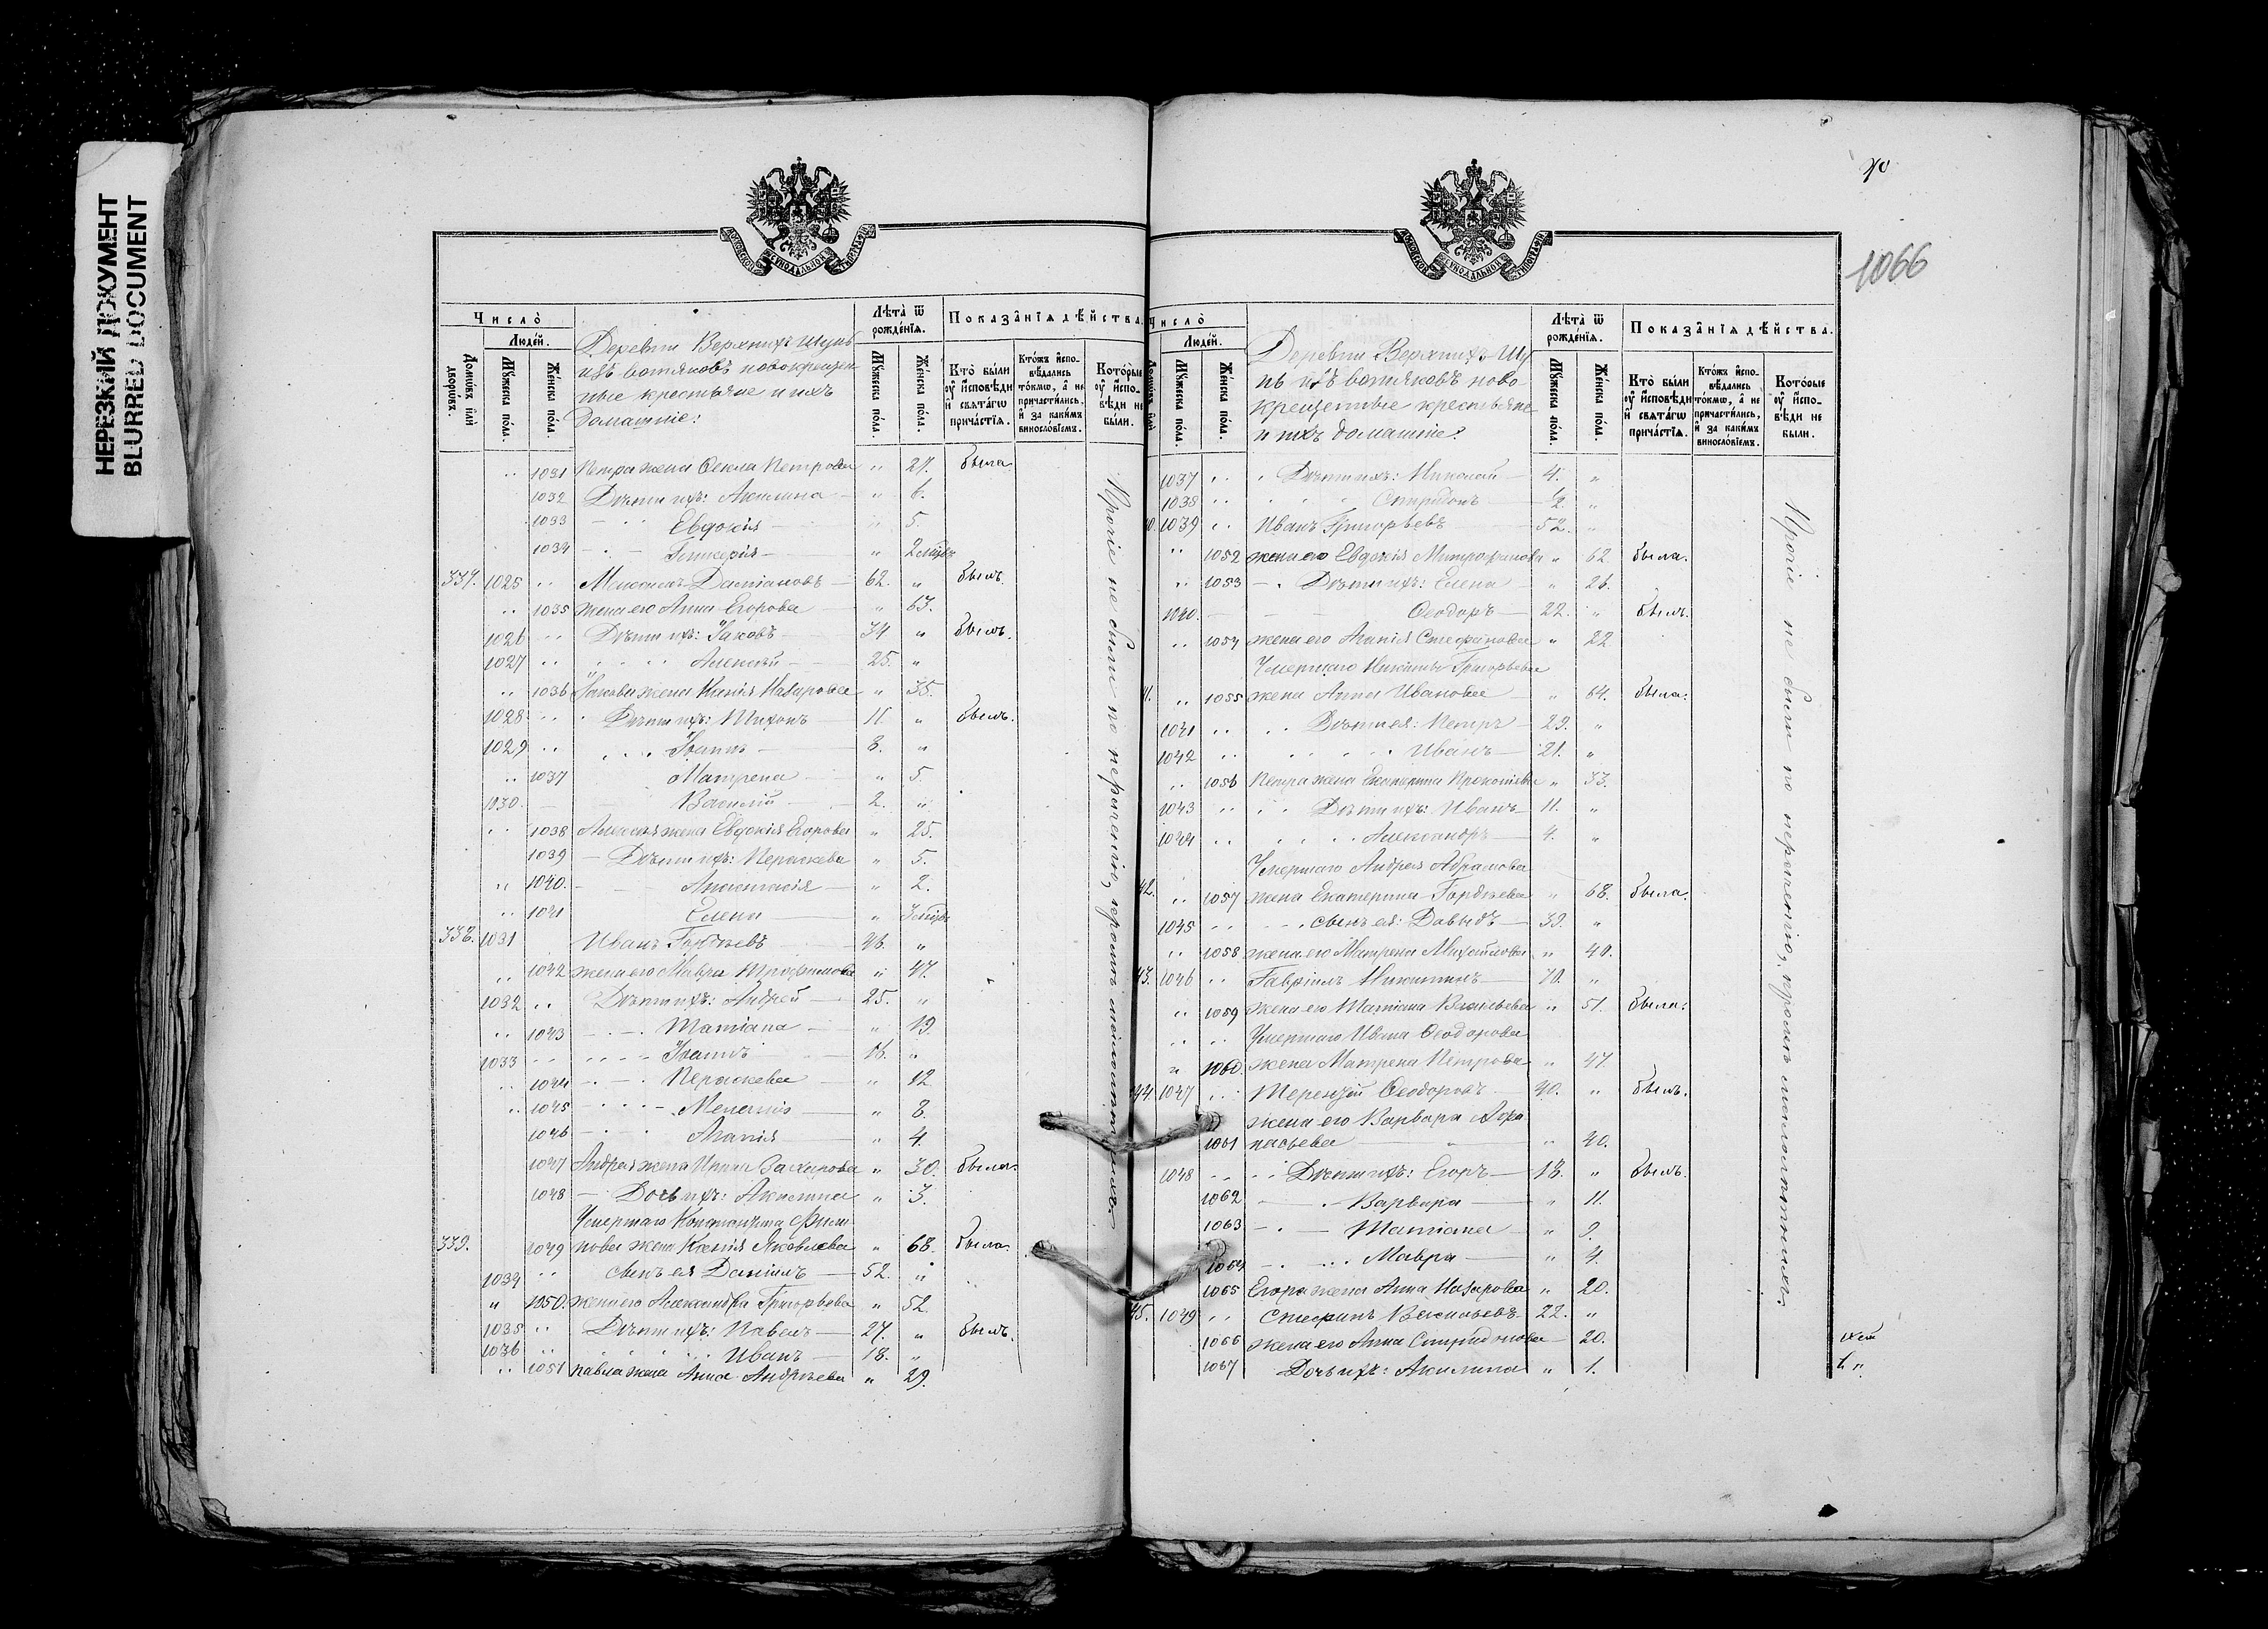 НЕРЕЗКИЙ ДОКУМЕНТ
BLURRED DOCUMENT
МОСКОВСКОЙ СѴНОДАЛЬНОЙ ТИПОГРАФІИ
Число̀
Люде́й.
Домѡ́въ и҆лѝ дворѡ́въ.
Мꙋ́жеска по́ла.
Же́нска по́ла.
Деревни Верхнихъ Шунь
изъ вотяковъ новокрещен
ные крестьяне и ихъ
домашніе:
Лѣ́та ѿ рожде́нїѧ.
Мꙋ́жеска по́ла.
Же́нска по́ла.
Показа̑нїѧ дѣ́йства.
Кто̀ бы́ли ᲂу҆ и҆́сповѣди и҆ ст҃а́гѡ прича́стїѧ.
Кто́жъ и҆спо-вѣ́дались то́кмѡ, а҆ не причасти́лись, и҆ за каки́мъ винослѡ́вїемъ.
Кото́рые ᲂу҆ и҆́спо-вѣди не бы́ли.
„ 1031 Петра жена Ѳекла Петрова „ 27. была.
1032 Дѣти ихъ: Акилина „ 6.
1033 Евдокія „ 5.
1034 Гликерія „ 2 мѣс.
337. 1025 „ Максимъ Даміановъ 62. „ былъ.
„ 1035 жена его Анна Егорова „ 63.
1026 „ Дѣти ихъ: Іаковъ 34 „ былъ.
1027 „ Алексѣй 25. „
„ 1036 Іакова жена Ксенія Назарова „ 35.
1028 „ Дѣти ихъ: Тихонъ 11 „ былъ.
1029 „ Іоаннъ 8. „
„ 1037 Матрена „ 5.
1030. Василій 2. „
„ 1038 Алексѣя жена Евдокія Егорова „ 25.
1039 Дѣти ихъ: Параскева „ 5.
„ 1040. Анастасія „ 2.
„ 1041 Елена „ 3 мѣс.
338. 1031 Иванъ Гордѣевъ 46. „
„ 1042 жена его Мавра Трофимова „ 47.
1032 „ Дѣти ихъ: Андрей 25. „
„ 1043 Татіана „ 19.
1033 „ Іоаннъ 16. „
„ 1044 Параскева „ 12
„ 1045 Меланія „ 8.
1046 Агапія „ 4.
1047 Андрея жена Ирина „ 30. была.
1048 Дочь ихъ: Акилина „ 3.
Умершаго Константина Филип
339. 1049 пова жена Ксенія Яковлева „ 68. была.
1034 „ сынъ ея Даніилъ 52. „
„ 1050. жена его Александра Григорьева „ 52.
1035 „ Дѣти ихъ: Павелъ 27. „ былъ.
1036 „ Иванъ 18. „
„ 1051 Павла жена Анна Андреева „ 29.
Прочіе не были по нераченію, кромѣ малолѣтнихъ.
1066
МОСКОВСКОЙ СѴНОДАЛЬНОЙ ТИПОГРАФІИ
Число̀
Люде́й.
Домѡ́въ и҆лѝ
Мꙋ́жеска по́ла.
Же́нска по́ла.
Деревни Верхнихъ Шу
нь изъ вотяковъ ново
крещенные крестьяне
и ихъ домашніе:
Лѣ́та ѿ рожде́нїѧ.
Мꙋ́жеска по́ла.
Же́нска по́ла.
Показа̑нїѧ дѣ́йства.
Кто̀ бы́ли ᲂу҆ и҆́сповѣди и҆ ст҃а́гѡ прича́стїѧ.
Кто́жъ и҆спо-вѣ́дались то́кмѡ, а҆ не причасти́лись, и҆ за каки́мъ винослѡ́вїемъ.
Кото́рые ᲂу҆ и҆́спо-вѣди не бы́ли.
1037 „ Дѣти ихъ: Николай 4. „
1038 „ Спиридонъ ½ „
0. 1039 „ Иванъ Григорьевъ 52. „
„ 1052 жена его Евдокія Митрофанова „ 62 была.
„ 1053 Дѣти ихъ: Елена „ 26.
1040. Ѳеодоръ 22. „ былъ.
„ 1054 жена его Агапія Стефанова „ 22
Умершаго Никиты Григорьева
41. „ 1055 жена Анна Иванова „ 64. была.
1041 „ Дѣти ея: Петръ 29. „
1042 „ Иванъ 21. „
„ 1056 Петра жена Екатерина Прокопьева „ 33.
1043 „ Дѣти ихъ: Иванъ 11. „
1044 „ Александръ 4. „
Умершаго Андрея Абрамова
42. „ 1057 жена Екатерина Гордѣева „ 68. была.
1045 „ сынъ ея: Давыдъ 39. „
„ 1058 жена его Матрена Михайлова „ 40.
43. 1046 „ Гавріилъ Никитинъ 70. „
„ 1059 жена его Татіана Васильева „ 51. была.
„ Умершаго Ивана Ѳеодорова
„ 1060. жена Матрена Петрова „ 47.
44. 1047 „ Терентій Ѳеодоровъ 40. „ былъ.
жена его Варвара Аѳа
1061 насьева „ 40.
1048 „ Дѣти ихъ: Егоръ 18. „ былъ.
1062 Варвара „ 11.
1063 Татіана „ 9.
1064 Мавра „ 4.
1065 Егора жена Анна Назарова „ 20.
45. 1049 „ Стефанъ Васильевъ 22. „
1066 жена его Анна Спиридонова 20.
1067 Дочь ихъ: Акилина „ 1.
Прочіе не были по нераченію, кромѣ малолѣтнихъ.